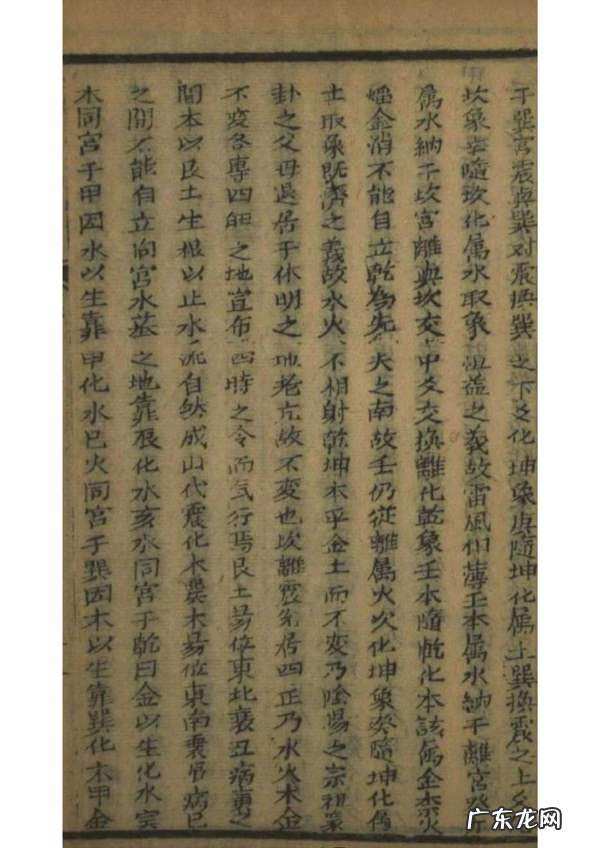 于巽宫震與巽对震換巽之下爻化坤象庚隨坤化属土巽換震之上爻
坎象辛隨坎化属水取象恒益之義故雷風相薄壬本属水納于離宫癸
属水納于坎宫離與坎交中爻交換離化乾象壬本隨乾化本該属金柰火
燔金消不能自立乾為先天之南故壬仍従離属火坎化坤象癸隨坤化属
土取象既濟之義故水火不相射乾坤本乎金土而不變乃陰陽之宗祖衆
卦之父母退居于休明之地老亢故不变也坎離震兌居四正乃水火木金
不变各専四正之地宣布四時之令而气行焉艮土易位東北衰丑病寅之
間本以艮土生根以止水流自然成山代震化木巽木易位東南衰辰病巳
之間不能自立向宫水墓之地靠辰化水亥水同宫于乾曰金以生化水寅
木同宫于甲因水以生靠甲化水巳火同宫于巽因木以生靠巽化木甲金
广东龙网